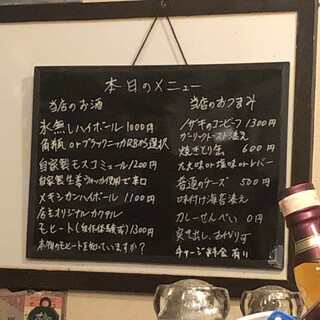 本日のメニュー
当店のお酒
氷無しハイボール 1000円
角瓶 or ブラックニッカ 選択
自家製モスコミュール 1200円
自家製生姜ウォッカ使用で辛口
メキシカンハイボール 1100円
店主オリジナルカクテル
モヒート(自作体験式) 1300円
本物のモヒートを知っていますか?
当店のおつまみ
ノザキのコンビーフ 1300円
ガーリックトースト添え
焼きとり缶 600円
大犬味 or 塩味 or レバー
普通のチーズ 500円
味付け海苔添え
カレーせんべい 0円
突き出し、おかわり可
チャージ料金有り